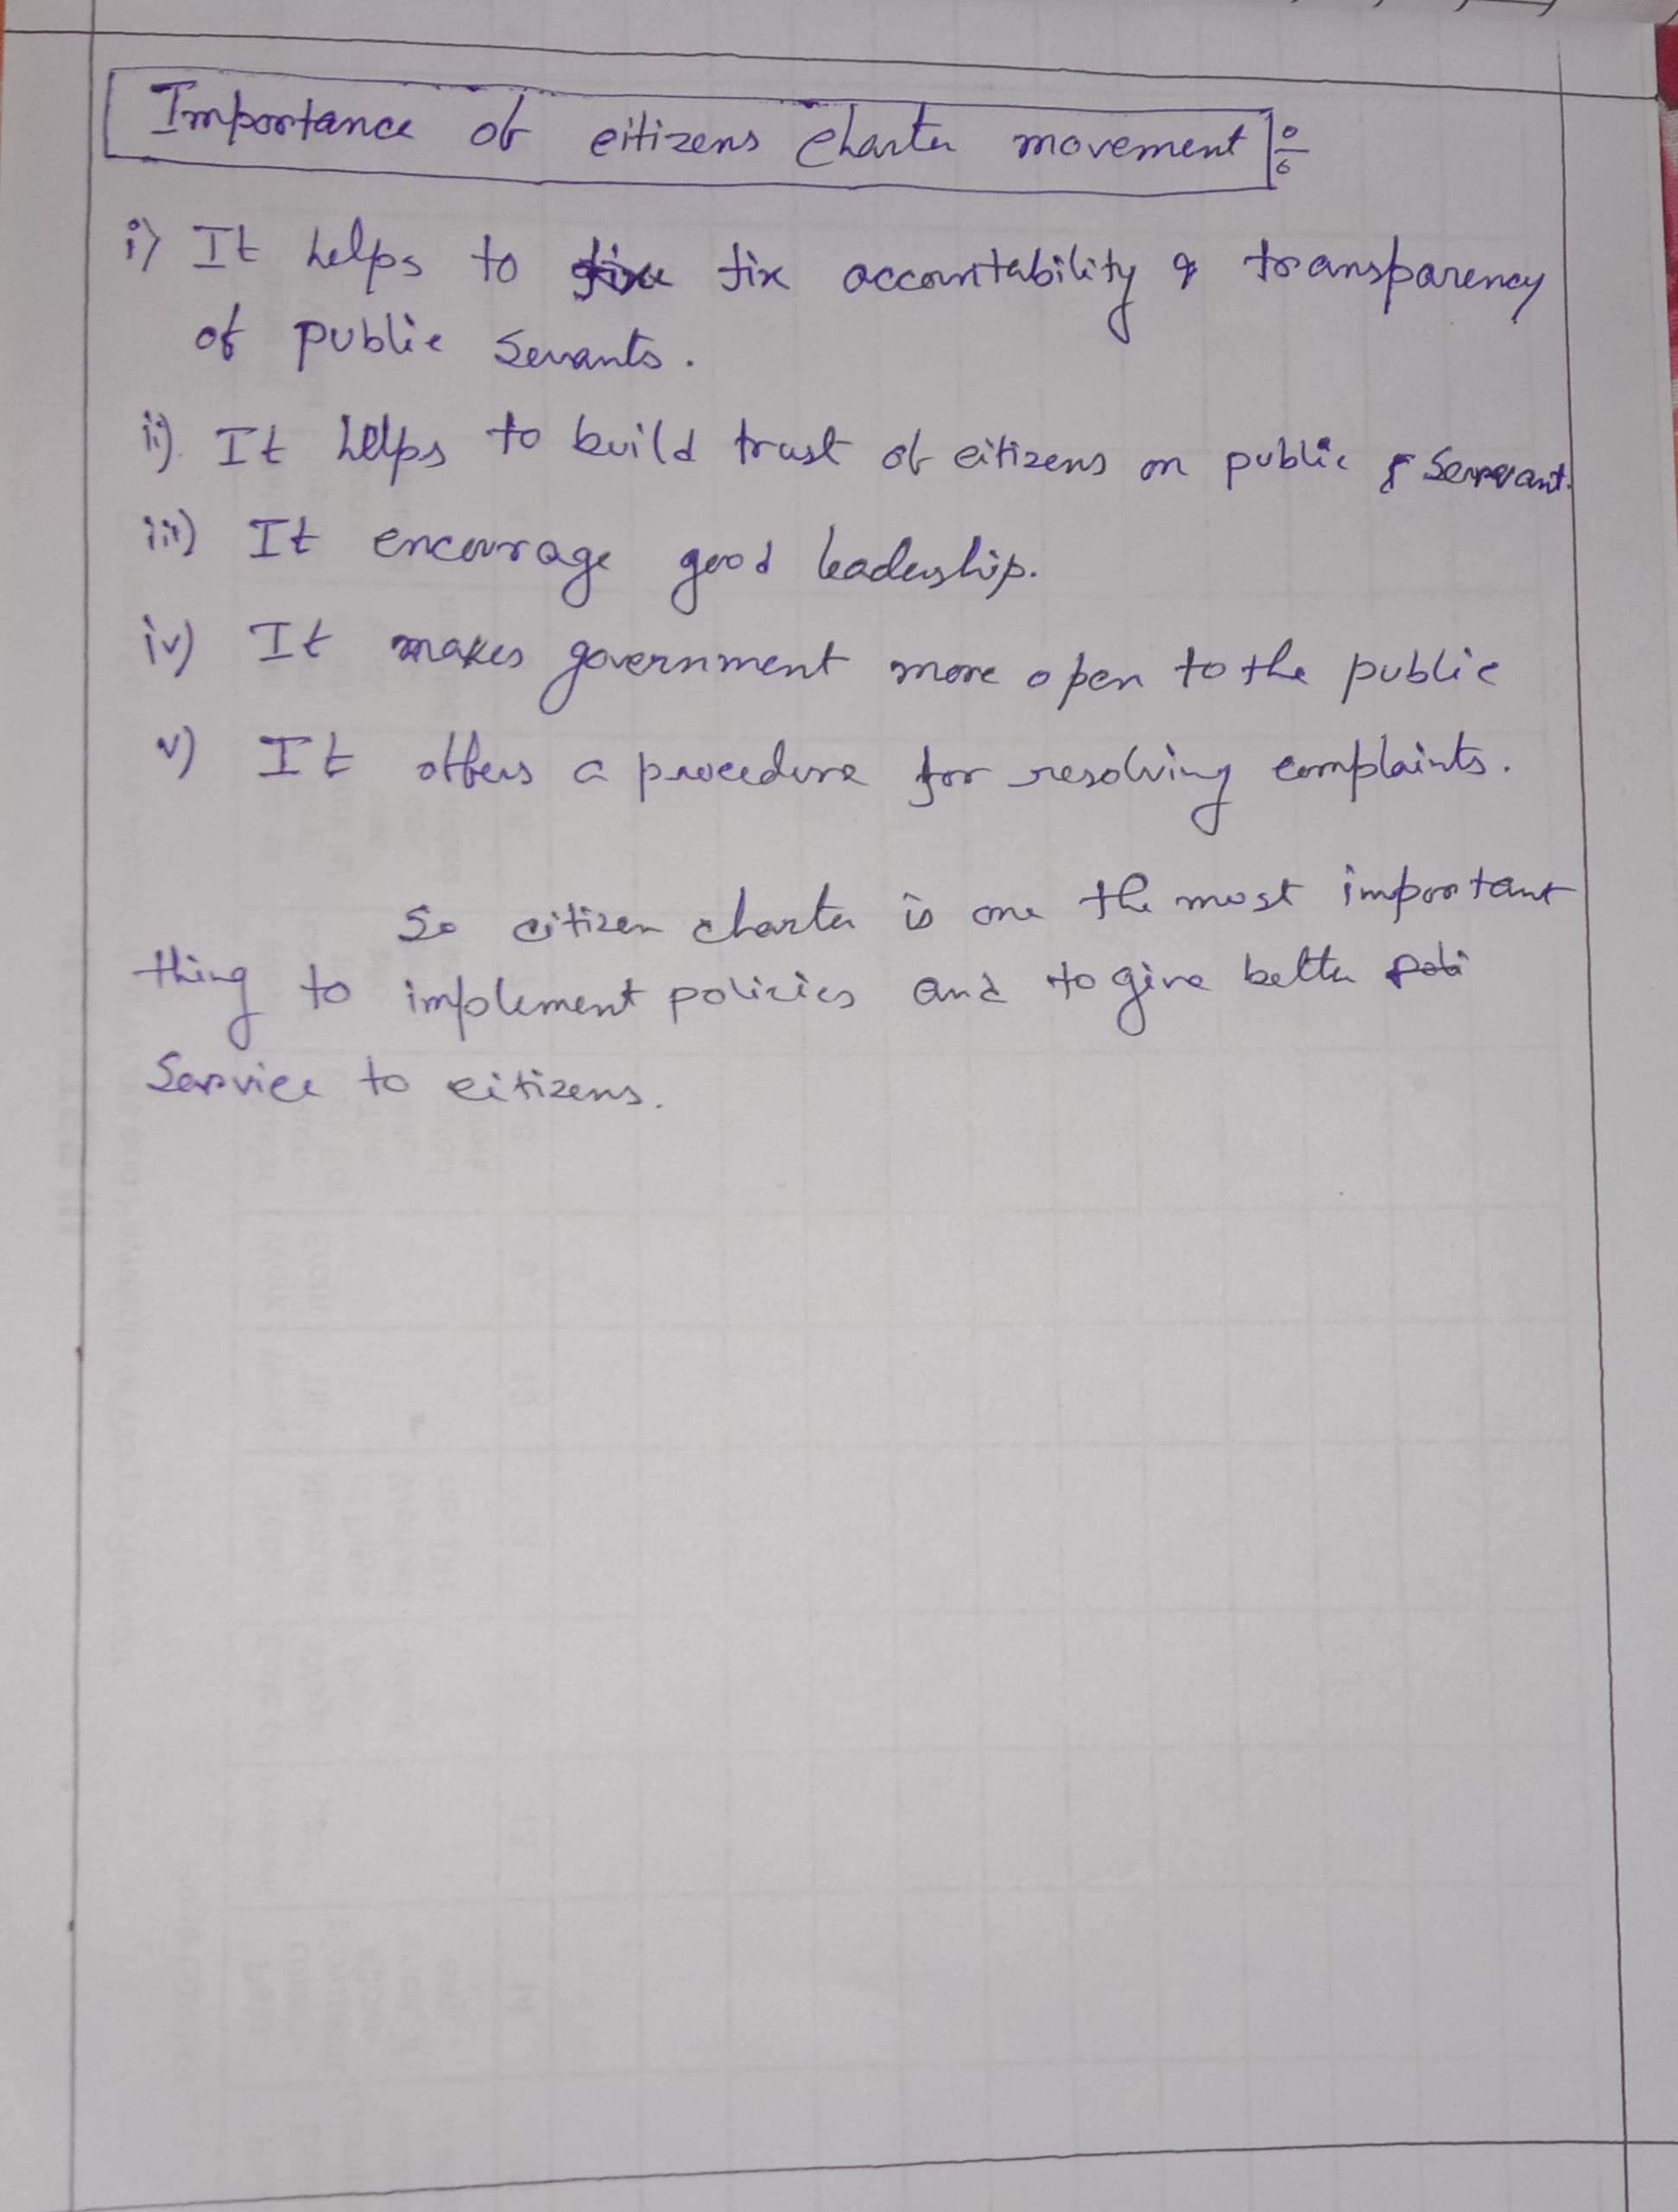 Importance of citizens charter movement :-
i) It helps to fix accountability & transparency
of public servants.
ii). It helps to build trust of citizens on public servant.
iii) It encourage good leadership.
iv) It makes government more open to the public
v) It offers a procedure for resolving complaints.
So citizen charter is one the most important
thing to implement policies and to give better
Service to citizens.